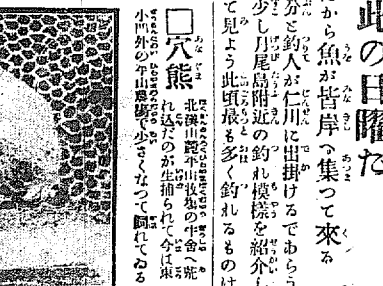 此の日曜た
から魚が皆岸へ集つて來る
分と釣人が仁川に出掛けるであらう
少し月尾島附近の釣れ模樣を紹介し
て見よう此頃最も多く釣れるものは
□穴熊
北漢山麓平山牧場の牛舍へ荒
れ込だのが生捕られて今は東
小門外の平山農塲で小さくなつて飼れてゐる